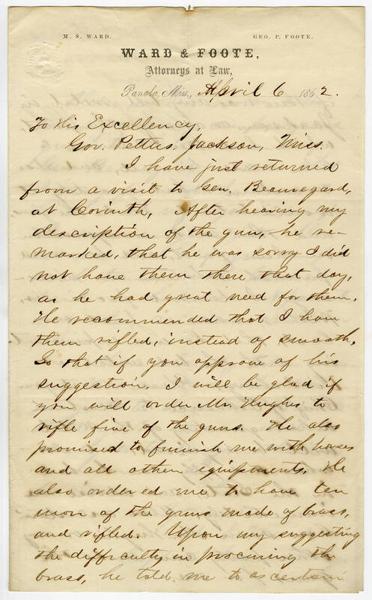 M. S. WARD. GEO. P. FOOTE.
WARD & FOOTE,
Attorneys at Law,
Panola, Miss, April 6 1862.
To His Excellency,
Gov. Pettus, Jackson, Miss.
I have just returned
from a visit to Gen. Beauregard,
at Corinth, After hearing my
description of the gun, he re-
marked, that he was sorry I did
not have them there that day,
as he had great need for them.
He recommended that I have
them rifled, instead of smooth.
So that if you approve of his
suggestion, I will be glad if
you will order Mr. Hughes to
rifle five of the guns. He also
promised to furnish me with horses
and all other equipments. He
also ordered me to have ten
more of the guns made of brass,
and rifled. Upon my suggesting
the difficulty in procuring the
brass, he told me to ascertain